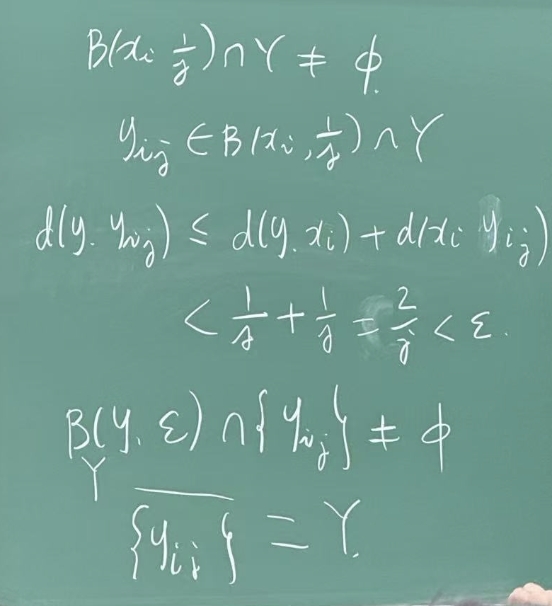 B(xᵢ 1/j) ∩ Y ≠ ϕ.
yᵢⱼ ∈ B(xᵢ, 1/j) ∩ Y
d(y. yᵢⱼ) ≤ d(y. xᵢ) + d(xᵢ yᵢⱼ)
< 1/j + 1/j = 2/j < ε.
B_Y(y. ε) ∩ {yᵢⱼ} ≠ ϕ
\overline{{yᵢⱼ}} = Y.